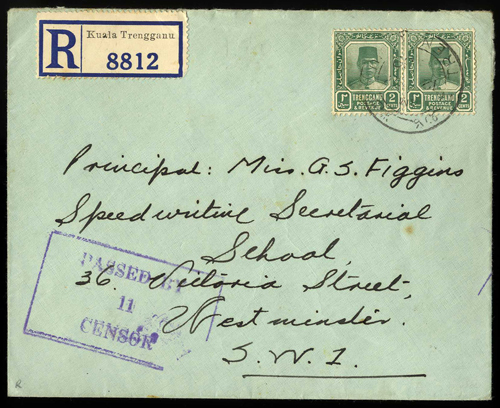 R
Kuala Trengganu
8812
TRENGGANU
POSTAGE
& REVENUE
2
CENTS
TRENGGANU
POSTAGE
& REVENUE
2
CENTS
Principal: Miss. G. S. Figgins
Speedwriting Secretarial
School,
36. Victoria Street,
Westminster.
S. W. 1.
PASSED BY
11
CENSOR
R